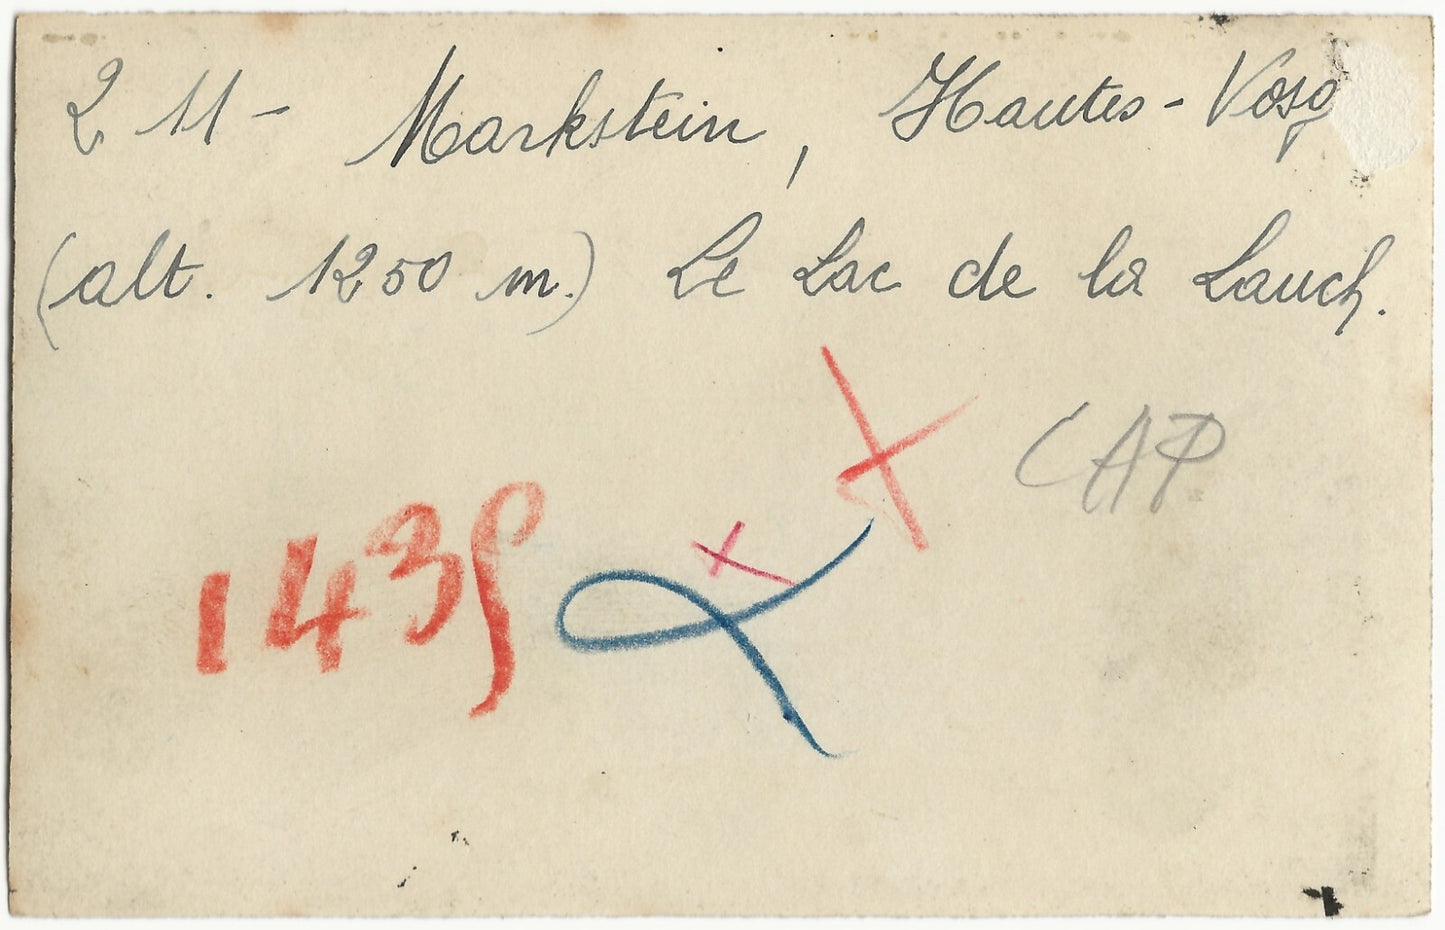 2 11 - Markstein, Hautes-Vosg
(alt. 1250 m.) Le Lac de la Lauch.
CAP
1435